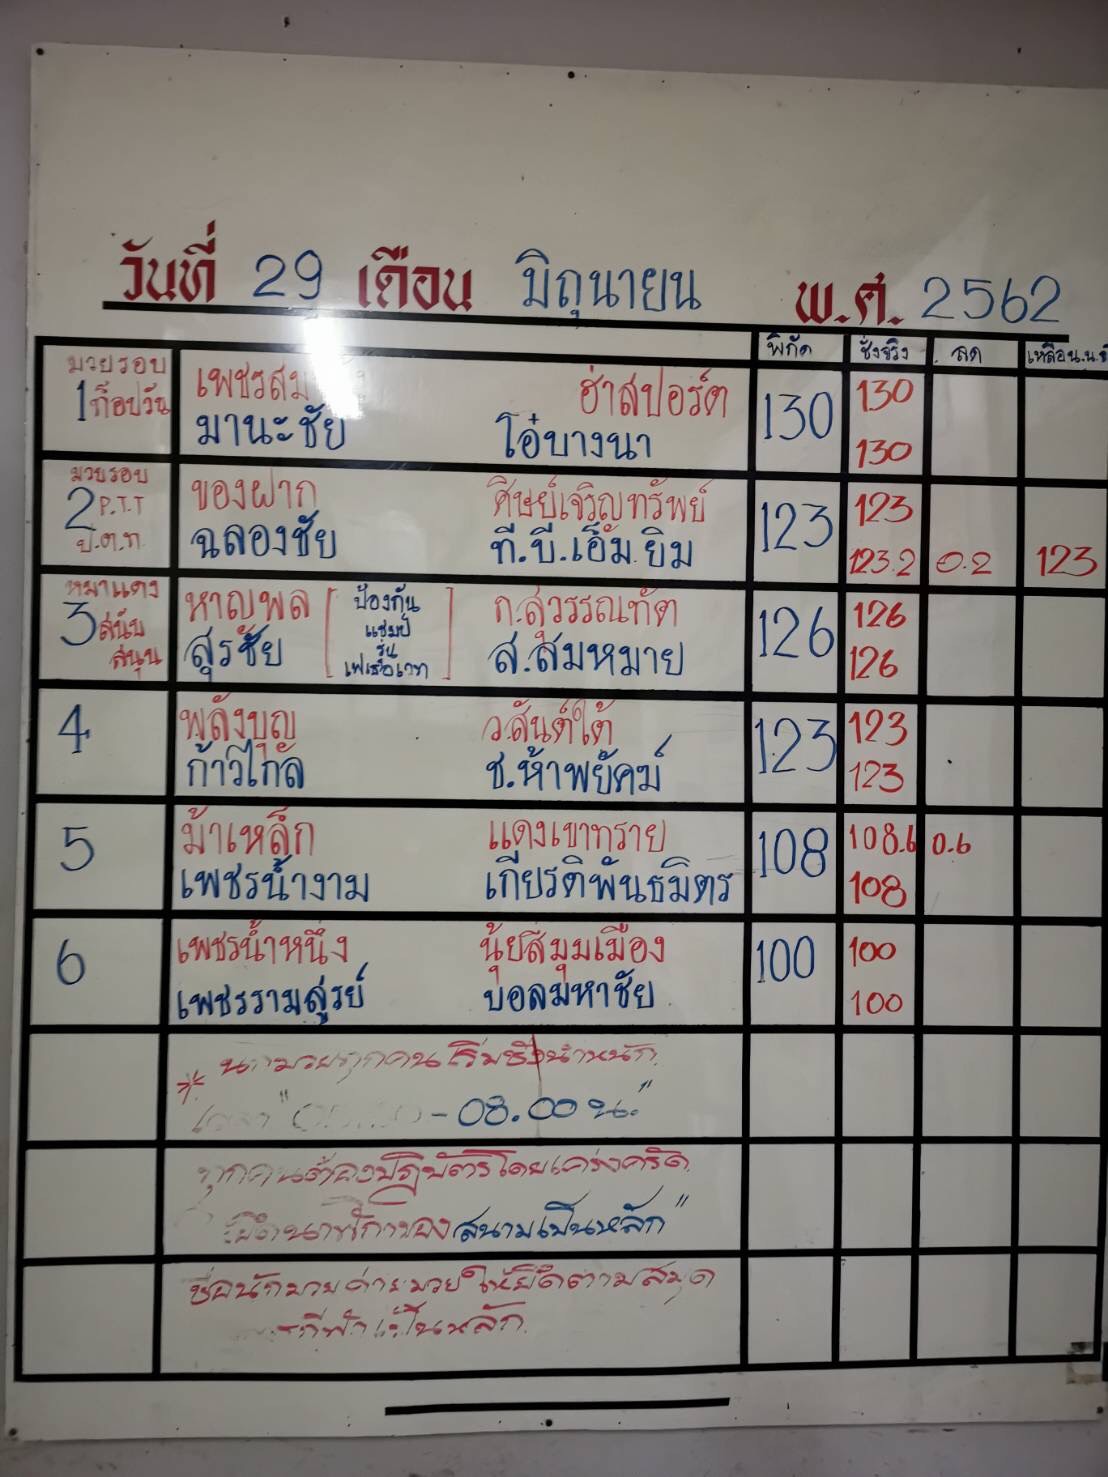 วันที่ 29 เดือน มิถุนายน พ.ศ. 2562
พิกัด ชั่งจริง ลด เหลือน.น.
มวยรอบ
1 ก็อปวัน
เพชรสม ฮ่าสปอร์ต 130 130
มานะชัย โอ๋บางนา 130
มวยรอบ
2 P.T.T
ป.ต.ท.
ของฝาก ศิษย์เจริญทรัพย์ 123 123
ฉลองชัย ที.บี.เอ็ม.ยิม 123.2 0.2 123
หมาแดง
3 สนับ
สนุน
หาญพล ก.สุวรรณทัต 126 126
สุรชัย ส.สมหมาย 126
ป้องกัน
แชมป์
รุ่น
เฟเธอเวท
4 พลังบุญ ว.สันต์ใต้ 123 123
ก้าวไกล ช.ห้าพยัคฆ์ 123
5 ม้าเหล็ก แดงเขาทราย 108 108.6 0.6
เพชรน้ำงาม เกียรติพันธมิตร 108
6 เพชรน้ำหนึ่ง นุ้ยสี่มุมเมือง 100 100
เพชรรามสูรย์ บอลมหาชัย 100
* นักมวยทุกคนเริ่มชั่งน้ำหนัก
เวลา - 08.00 น."
ทุกคนต้องปฏิบัติโดยเคร่งครัด
ยึดนาฬิกาของสนามเป็นหลัก"
ชื่อนักมวยค่ายมวยให้ยึดตามสมุด
กีฬาเป็นหลัก